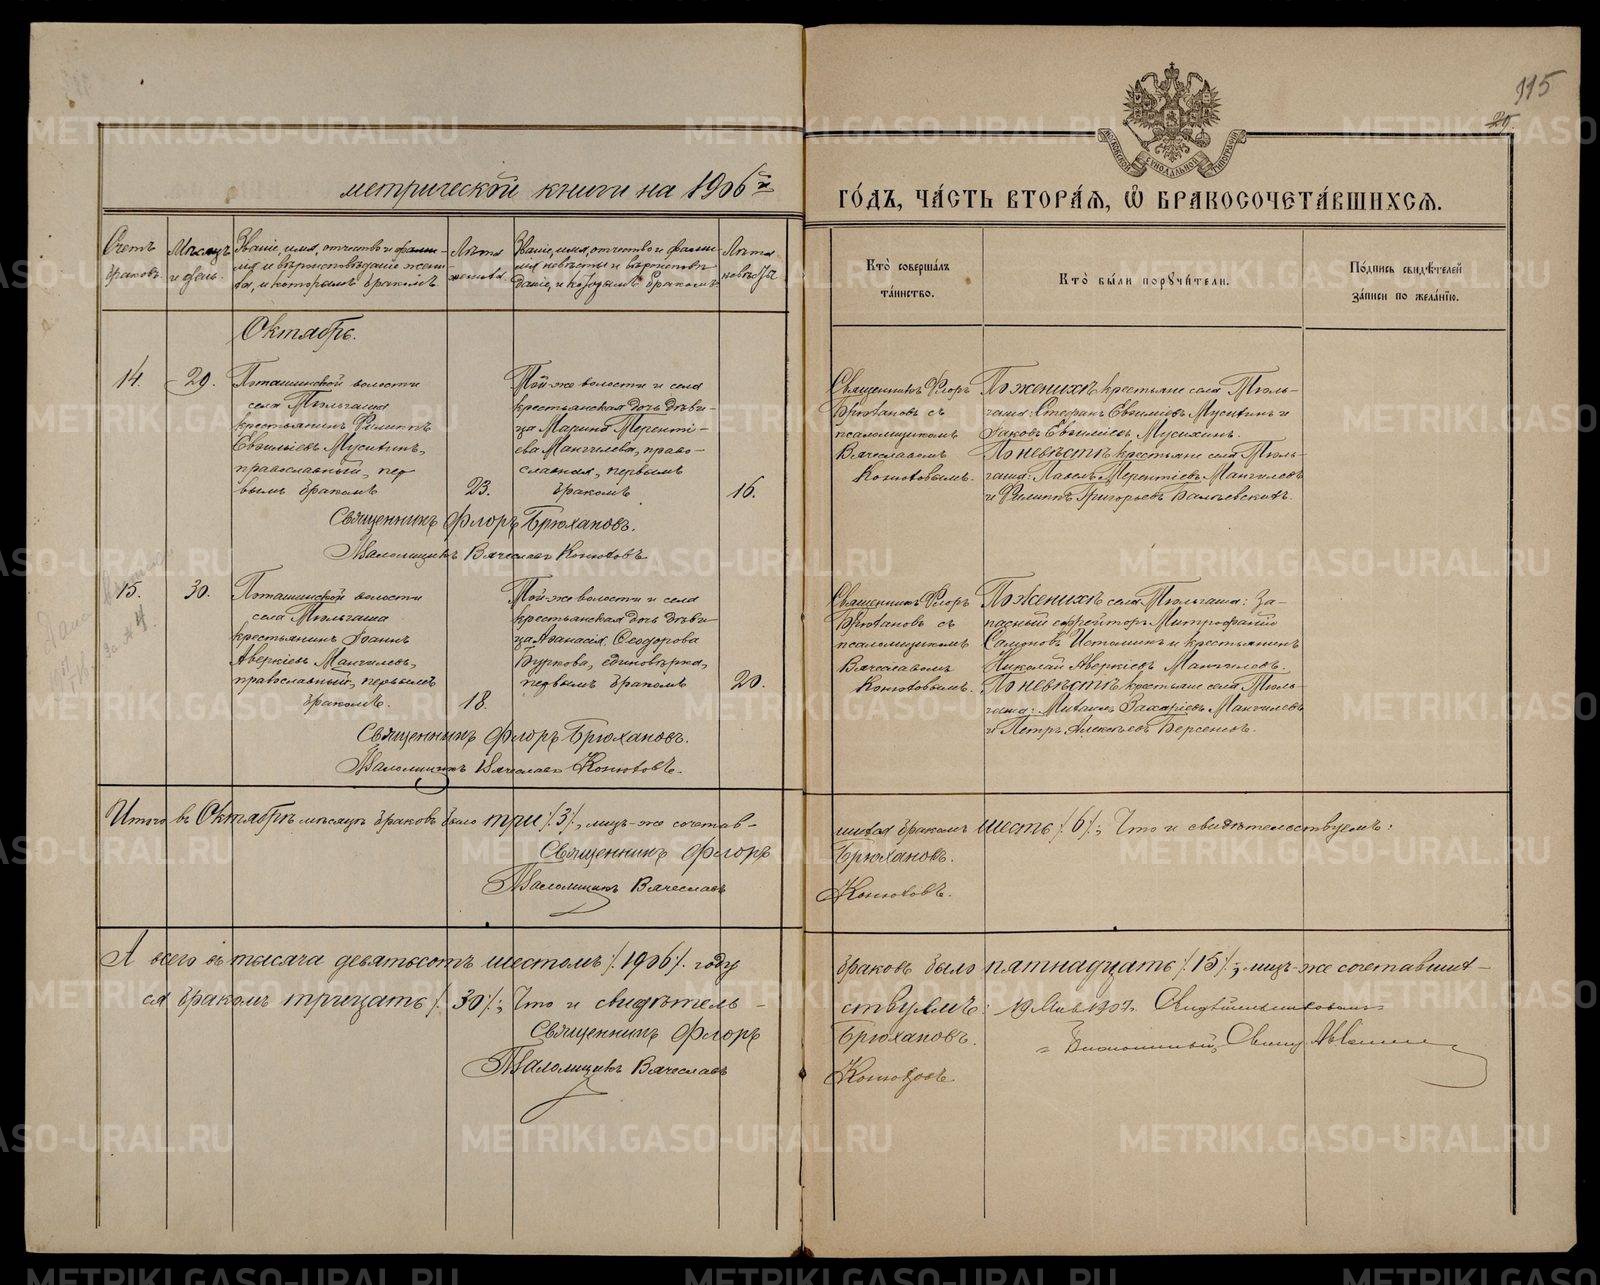 115
29.
метрической книги на 1906й
ГОДЪ, ЧАСТЬ ВТОРАЯ, Ѡ БРАКОСОЧЕТАВШИХСЯ.
Счетъ браковъ.
Мѣсяцъ и день.
Званіе, имя, отчество и фами-
лія и вѣроисповѣданіе жени-
ха, и которымъ бракомъ.
Лѣта жениха.
Званіе, имя, отчество и фами-
лія невѣсты и вѣроиспов-
даніе, и которымъ бракомъ.
Лѣта невѣсты
Кто совершалъ
таинство.
Кто были поручители.
Подпись свидѣтелей
записи по желанію.
Октябрь.
14.
29.
Поташинской волости
села Тюльгаша
крестьянинъ Филиппъ
Евѳиміевъ Мусихинъ,
православный, пер
вымъ бракомъ
23.
Той-же волости и села
крестьянская дочь дѣви-
ца Марина Терентi-
ева Мангилева, право-
славная, первымъ
бракомъ
16.
Священникъ Флоръ
Брюхановъ съ
псаломщикомъ
Вячеславомъ
Конюховымъ.
По женихѣ крестьяне села Тюль-
гаша: Стефанъ Евѳиміевъ Мусихинъ и
Іаковъ Евѳиміевъ Мусихинъ.
По невѣстѣ крестьяне села Тюль-
гаша: Павелъ Терентіевъ Мангилевъ
и Филиппъ Григорьевъ
Священникъ Флоръ Брюхановъ.
Псаломщикъ Вячеславъ Конюховъ
15.
30.
Поташинской волости
села Тюльгаша
крестьянинъ Іоаннъ
Аверкіевъ Мангилевъ,
православный, первымъ
бракомъ.
18.
Той-же волости и села
крестьянская дочь дѣви-
ца Аѳанасія Ѳеодорова
Буркова, единовѣрка,
первымъ бракомъ
20.
Священникъ Флоръ
Брюхановъ съ
псаломщикомъ
Вячеславомъ
Конюховымъ.
По женихѣ села Тюльгаша: За-
пасный ефрейторъ Митрофаній
Истоминъ и крестьянинъ
Николай Аверкіевъ Мангилевъ.
По невѣстѣ крестьяне села Тюль-
гаша: Михаилъ Захаріевъ Мангилевъ
и Петръ Алексѣевъ Берсеневъ.
Священникъ Флоръ Брюхановъ.
Псаломщикъ Вячеславъ Конюховъ.
Итого въ Октябрѣ мѣсяцѣ браковъ было три /3/, лицъ-же сочетав-
шихся бракомъ шесть /6/; Что и свидѣтельствуемъ:
Священникъ Флоръ Брюхановъ.
Псаломщикъ Вячеславъ Конюховъ.
А всего въ тысяча девятьсотъ шестомъ /1906/ году браковъ было пятнадцать /15/; лицъ-же сочетавших-
ся бракомъ тридцать /30/; Что и свидѣтель-
ствуемъ:
Священникъ Флоръ Брюхановъ.
Псаломщикъ Вячеславъ Конюховъ.
METRIKI.GASO-URAL.RU